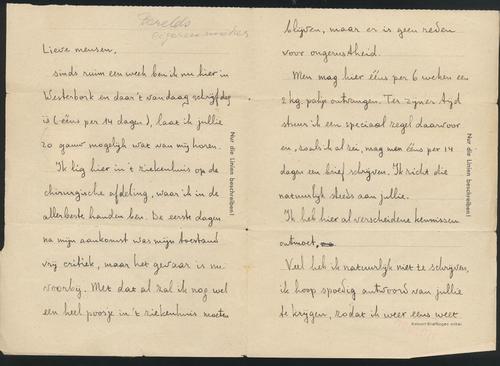 Lieve mensen,
sinds ruim een week ben ik nu hier in
Westerbork en daar 't vandaag schrijfdag
is (- ééns per 14 dagen), laat ik jullie
zo gauw mogelijk wat van mij horen.
Ik lig hier in 't ziekenhuis op de
chirurgische afdeling, waar ik in de
allerbeste handen ben. De eerste dagen
na mijn aankomst was mijn toestand
vrij critiek, maar het gevaar is nu
voorbij. Met dat al zal ik nog wel
een heel poosje in 't ziekenhuis moeten
Nur die Linien beschreiben!
blijven, maar er is geen reden
voor ongerustheid.
Men mag hier ééns per 6 weken een
2 kg. pakje ontvangen. Ter zijner tijd
stuur ik een speciaal zegel daarvoor
en, zoals ik al zei, mag men ééns per 14
dagen een brief schrijven. Ik richt die
natuurlijk steeds aan jullie.
Ik heb hier al verscheidene kennissen
ontmoet.
Veel heb ik natuurlijk niet te schrijven.
ik hoop spoedig antwoord van jullie
te krijgen, zodat ik weer eens weet
Nur die Linien beschreiben!